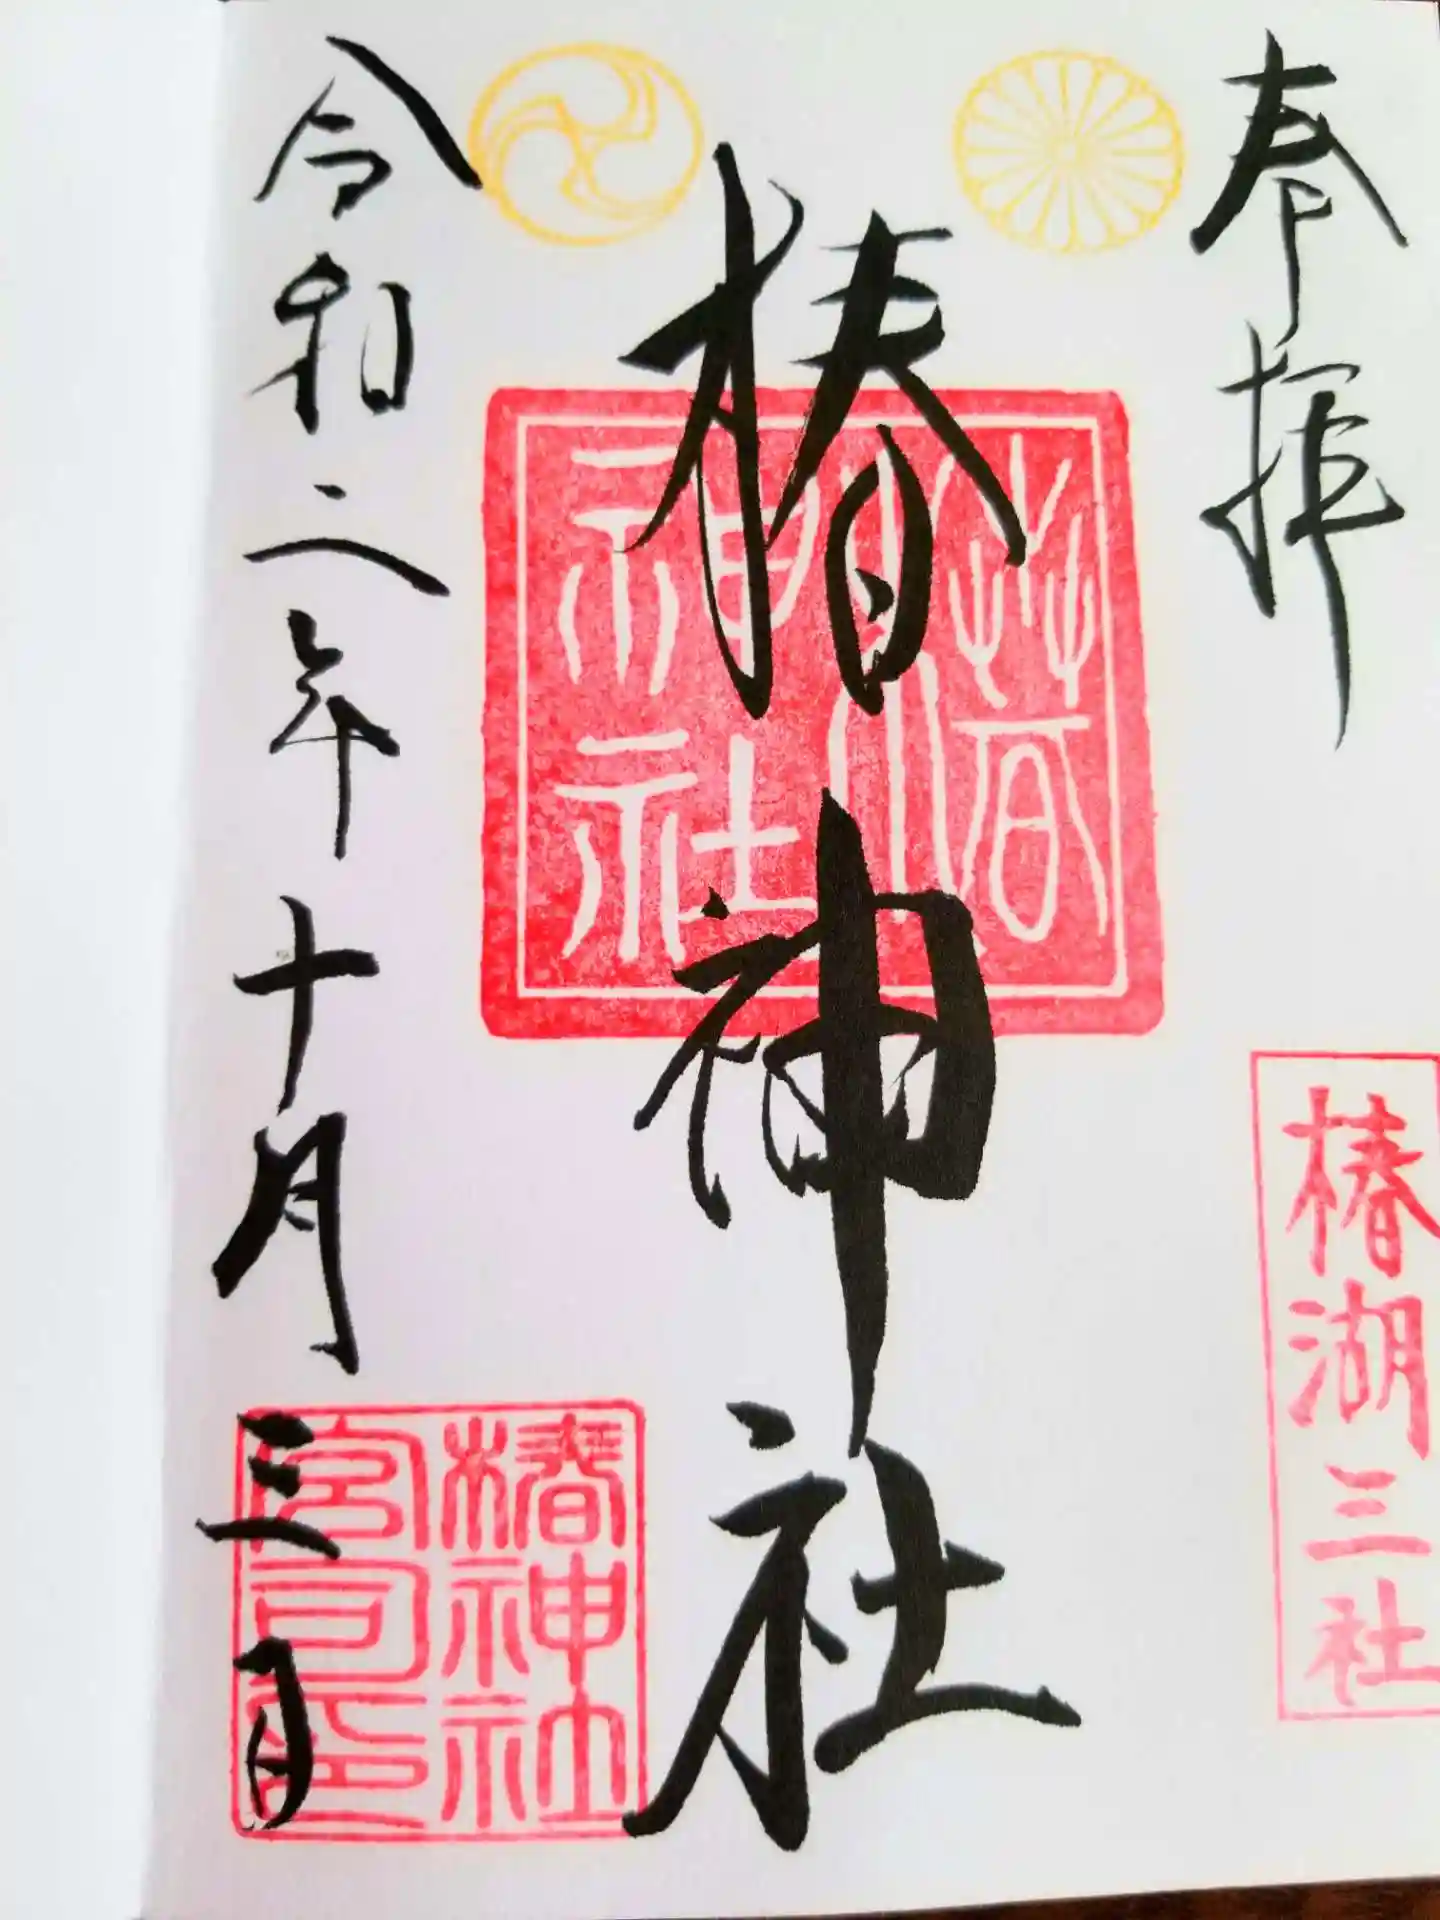 奉拝
椿湖三社
椿神社
椿神社
令和二年十月三日
椿神社
宮司印